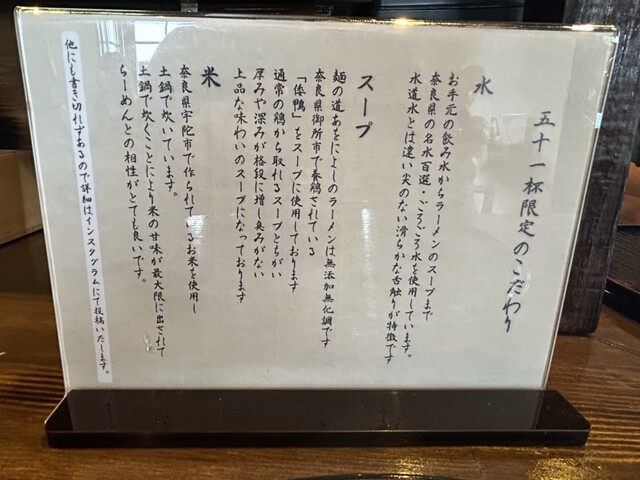 五十一杯限定のこだわり
水
お手元の飲み水からラーメンのスープまで
奈良県の名水百選・ごろごろ水を使用しています。
水道水とは違い尖のない滑らかな舌触りが特徴です
スープ
麺の道あをによしのラーメンは無添加無化調です
奈良県御所市で養鶏されている
「倭鴨」をスープに使用しております
通常の鶏から取れるスープとちがい
厚みや深みが格段に増し臭みがない
上品な味わいのスープになっております
米
奈良県宇陀市で作られているお米を使用し
土鍋で炊いています。
土鍋で炊くことにより米の甘味が最大限に出されて
らーめんとの相性がとても良いです。
他にも書き切れずあるので詳細はインスタグラムにて投稿いたします。